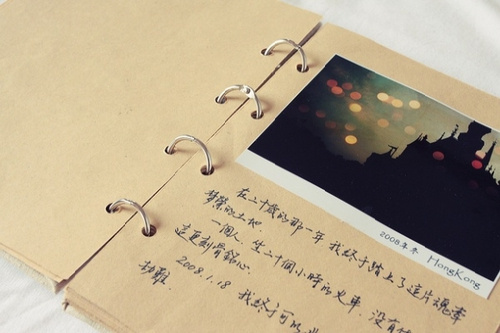 2008年冬 HongKong
在二十歲的那一年 我終於踏上了這片魂牽
夢縈的土地.
一個人. 坐二十個小時的火車. 沒有
這更刻骨銘心.
2008.1.18 我終于可以